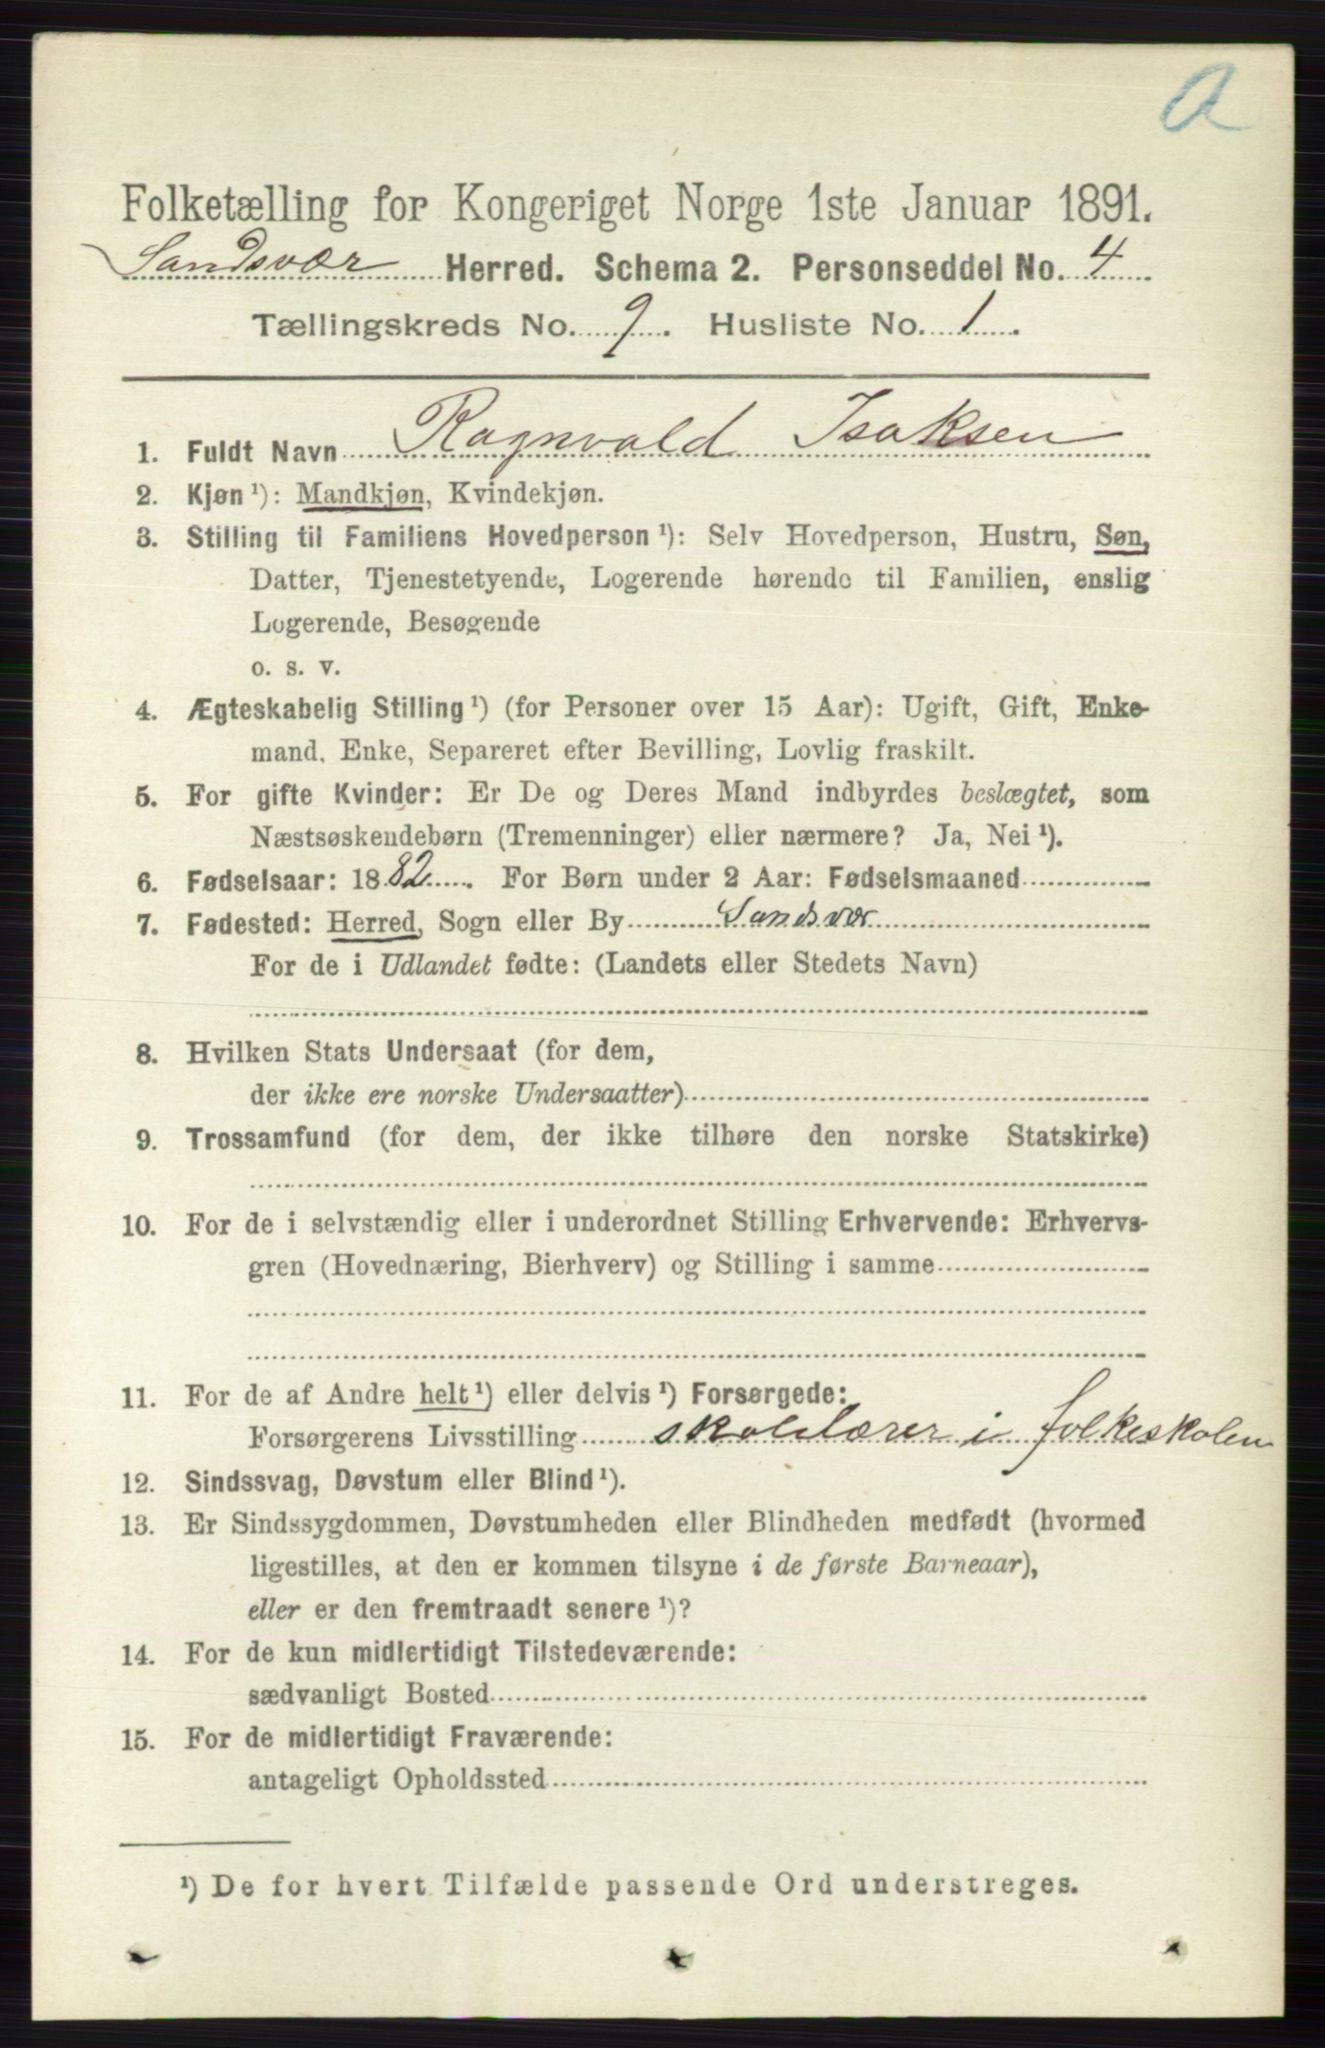 a
Folketælling for Kongeriget Norge 1ste Januar 1891.
Sandsvær Herred. Schema 2. Personseddel No. 4
Tællingskreds No. 9. Husliste No. 1.
1. Fuldt Navn Ragnvald Isaksen
2. Kjøn ¹): Mandkjøn, Kvindekjøn.
3. Stilling til Familiens Hovedperson ¹): Selv Hovedperson, Hustru, Søn,
Datter, Tjenestetyende, Logerende hørende til Familien, enslig
Logerende, Besøgende
o. s. v.
4. Ægteskabelig Stilling ¹) (for Personer over 15 Aar): Ugift, Gift, Enke-
mand, Enke, Separeret efter Bevilling, Lovlig fraskilt.
5. For gifte Kvinder: Er De og Deres Mand indbyrdes beslægtet, som
Næstsøskendebørn (Tremenninger) eller nærmere? Ja, Nei ¹).
6. Fødselsaar: 1882. For Børn under 2 Aar: Fødselsmaaned
7. Fødested: Herred, Sogn eller By Sandsvær
For de i Udlandet fødte: (Landets eller Stedets Navn)
8. Hvilken Stats Undersaat (for dem,
der ikke ere norske Undersaatter)
9. Trossamfund (for dem, der ikke tilhøre den norske Statskirke)
10. For de i selvstændig eller i underordnet Stilling Erhvervende: Erhvervs-
gren (Hovednæring, Bierhverv) og Stilling i samme
11. For de af Andre helt ¹) eller delvis ¹) Forsørgede:
Forsørgerens Livsstilling skolelærer i folkeskolen
12. Sindssvag, Døvstum eller Blind ¹).
13. Er Sindssygdommen, Døvstumheden eller Blindheden medfødt (hvormed
ligestilles, at den er kommen tilsyne i de første Barneaar),
eller er den fremtraadt senere ¹)?
14. For de kun midlertidigt Tilstedeværende:
sædvanligt Bosted
15. For de midlertidigt Fraværende:
antageligt Opholdssted
¹) De for hvert Tilfælde passende Ord understreges.